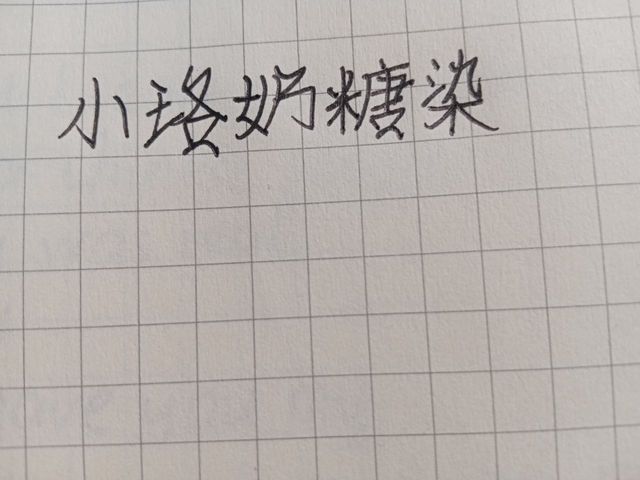 小珞奶糖染